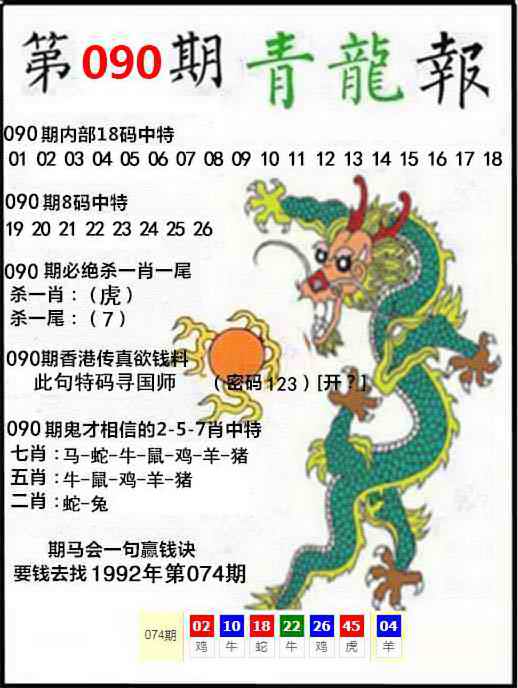 第090期青龍報
090期内部18码中特
01 02 03 04 05 06 07 08 09 10 11 12 13 14 15 16 17 18
090期8码中特
19 20 21 22 23 24 25 26
090 期必绝杀一肖一尾
杀一肖：（虎）
杀一尾：（7）
090期香港传真欲钱料
此句特码寻国师 （密码123）[开？]
090期鬼才相信的2-5-7肖中特
七肖：马-蛇-牛-鼠-鸡-羊-猪
五肖：牛-鼠-鸡-羊-猪
二肖：蛇-兔
期马会一句赢钱诀
要钱去找1992年第074期
074期 02 10 18 22 26 45 04
鸡 牛 蛇 牛 鸡 虎 羊